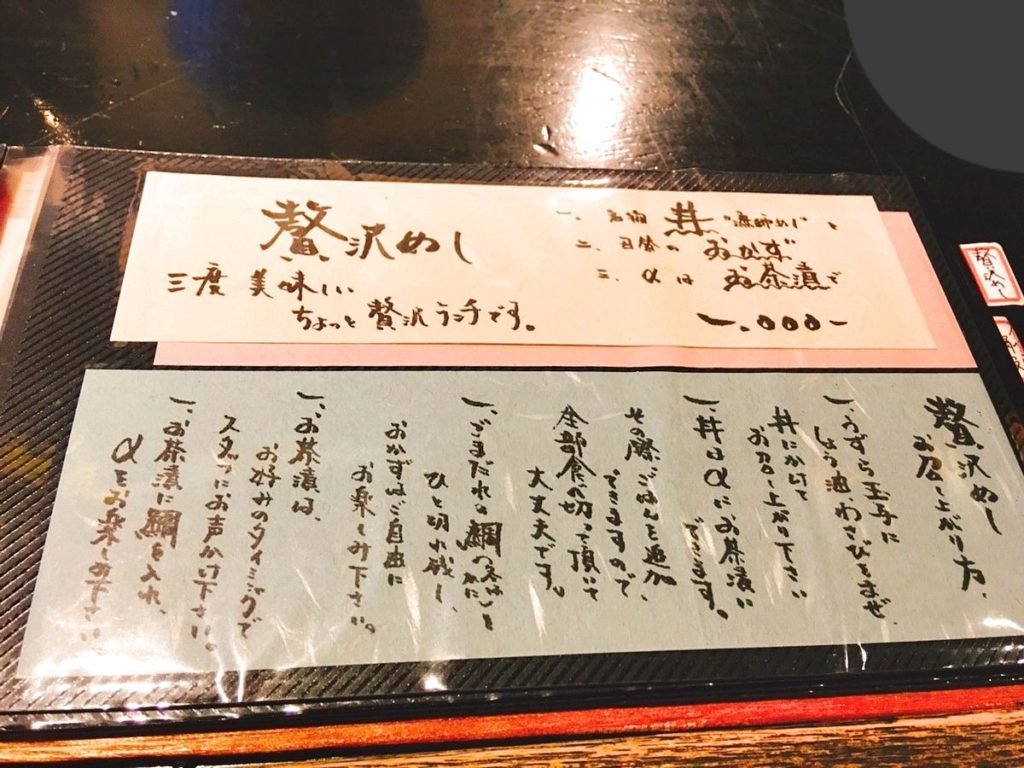 贅沢めし
三度美味しい
ちょっと贅沢ランチです。
一、名物 丼 "漁師めし" と
二、日替の おかず
三、αは お茶漬で
一、〇〇〇-
贅沢めし
お召し上がり方、
一、うずら玉子に
しょう油、わさびをまぜ、
丼にかけて
お召し上がり下さい
一、丼はαにお茶漬に
できます。
その際ごはんを追加
できますので、
全部食べ切って頂いて
大丈夫です。
一、ごまだれの鯛
ひと切れ残し、
おかずはご自由に
お楽しみ下さい。
一、お茶漬は、
お好みのタイミングで
スタッフにお声かけ下さい。
一、お茶漬に鯛を入れ、
αをお楽しみ下さい
贅沢めし